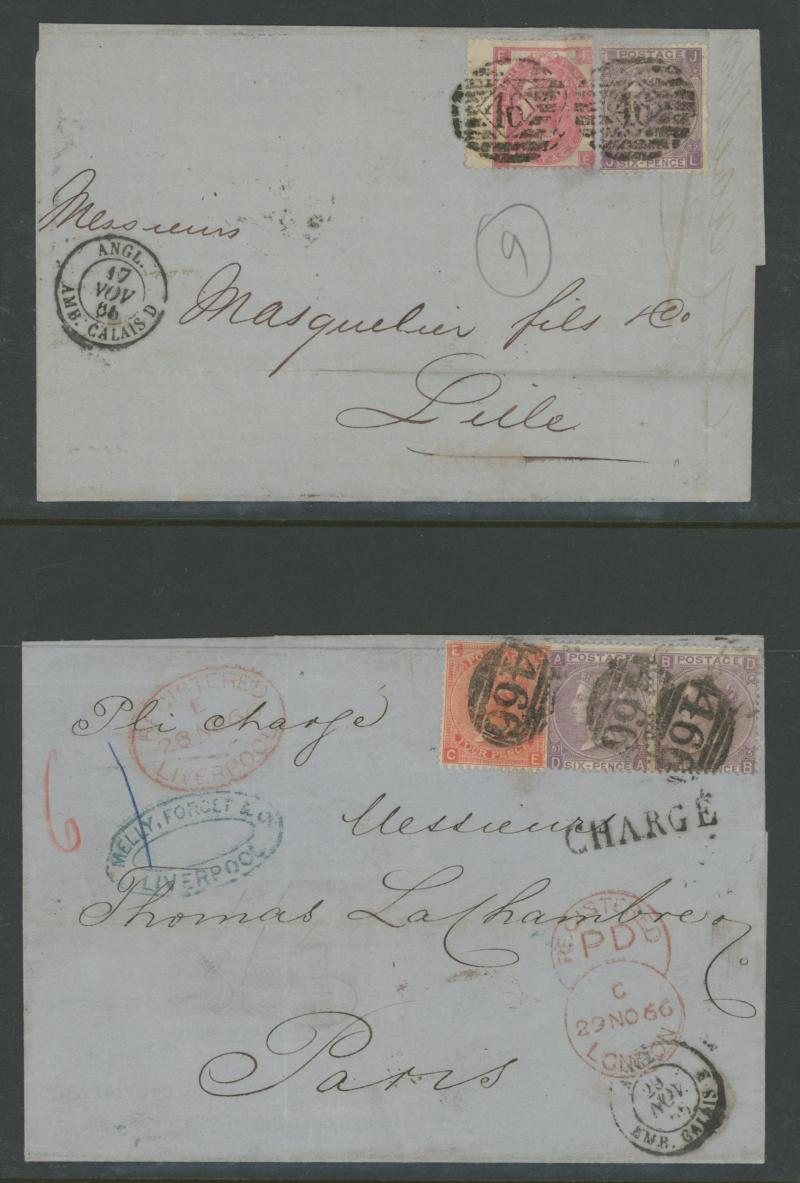 E
E
POSTAGE
J
16
16
J
SIX-PENCE
L
9
Messieurs
ANGL.
17
NOV
66
AMB. CALAIS D
Masquelier fils & Co
Lille
REGISTERED
E
28 NO 66
LIVERPOOL
Pli Chargé
E
466
C
FOUR PENCE
E
A
POSTAGE
B
466
D
SIX-PENCE
A
B
POSTAGE
D
466
D
B
6
MELLY, FORGET & Co
LIVERPOOL
Messieurs
CHARGÉ
Thomas LaChambre
REGISTERED
PD
C
29 NO 66
LONDON
Paris
29
NOV
CALAIS